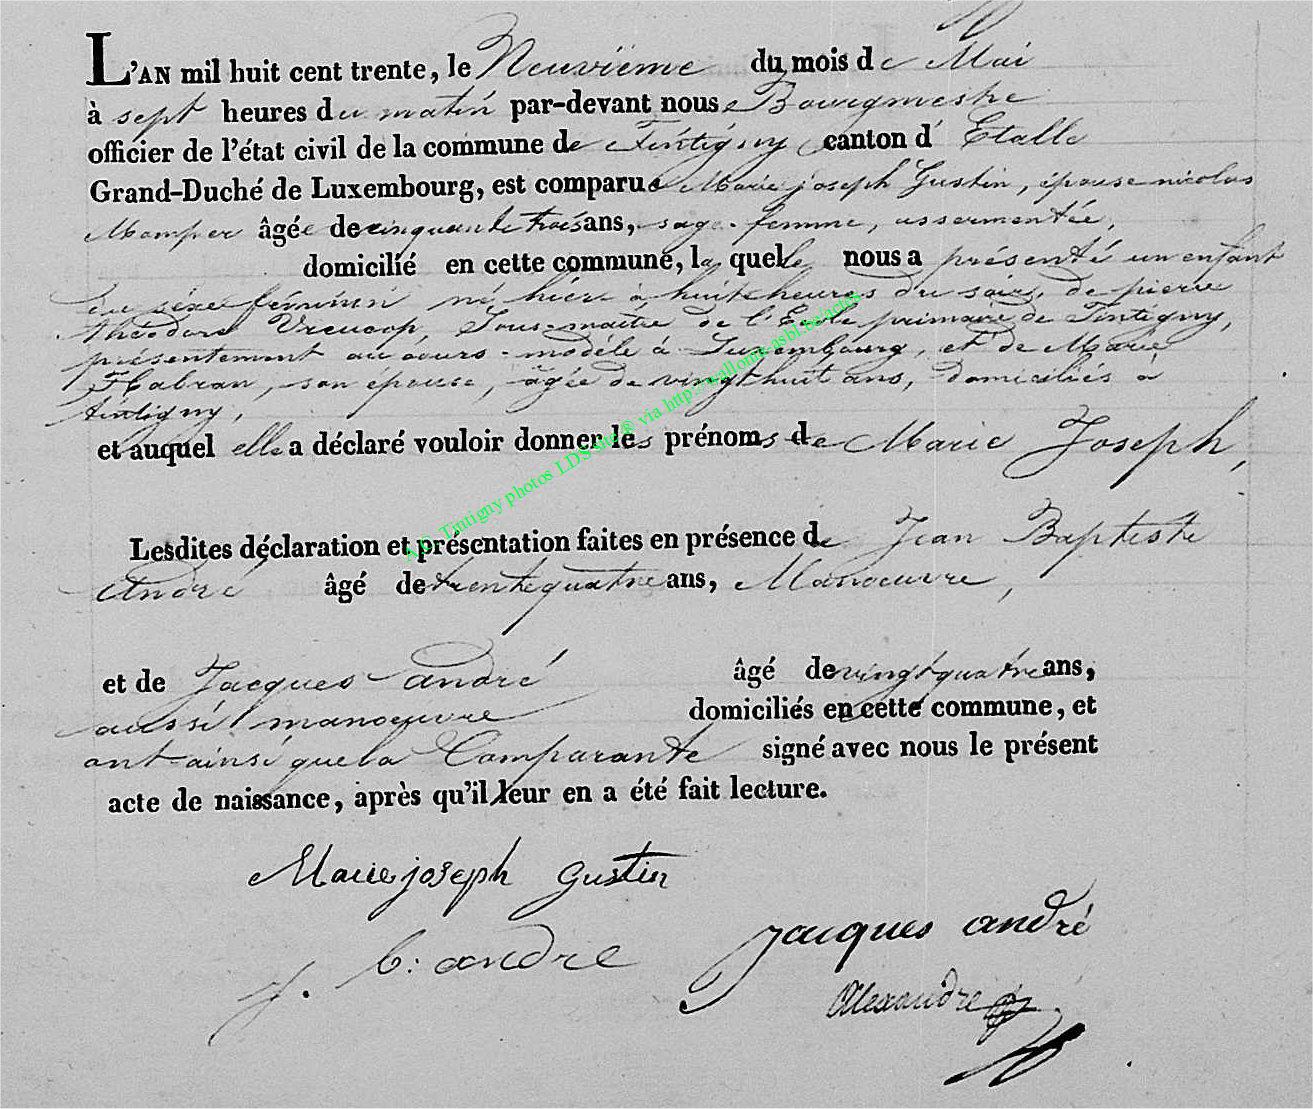 L'AN mil huit cent trente, le Neuvième du mois de Mai
à sept heures du matin par-devant nous Bourgmestre
officier de l'état civil de la commune de Tintigny canton d' Etalle
Grand-Duché de Luxembourg, est comparue Marie joseph Gustin, épouse nicolas
Mamper âgée de cinquante trois ans, sage-femme, assermentée,
domicilié en cette commune, la quelle nous a présenté un enfant
du séxe féminin né hier à huit heures du soir, de pierre
théodore, Sous-maître de l'Ecole primaire de Tintigny,
présentement au cours-modèle à Luxembourg, et de Marie
Habran, son épouse, âgée de vingt huit ans, domiciliés à
tintigny,
et auquel elle a déclaré vouloir donner les prénoms de Marie Joseph,
A.C. Tintigny photos LDS site © via http://wallonia-asbl.be/actes
Lesdites déclaration et présentation faites en présence de Jean Baptiste
André âgé de trente quatre ans, Manoeuvre,
et de Jacques andré âgé de vingt quatre ans,
aussi manoeuvre domiciliés en cette commune, et
ont ainsi que la Comparante signé avec nous le présent
acte de naissance, après qu'il leur en a été fait lecture.
Marie joseph gustin
j. b: andre
jacques andré
Alexandre